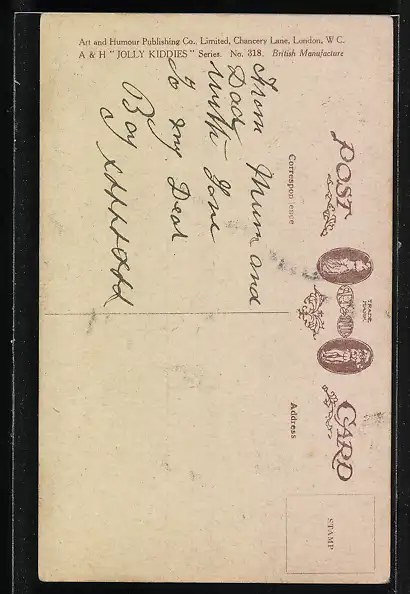 Art and Humour Publishing Co., Limited, Chancery Lane, London, W C.
A & H "JOLLY KIDDIES" Series. No. 318. British Manufacture
POST CARD
TRADE MARK
Correspondence
Address
STAMP
From Mum and
Dad
with Love
to my Dear
Boy